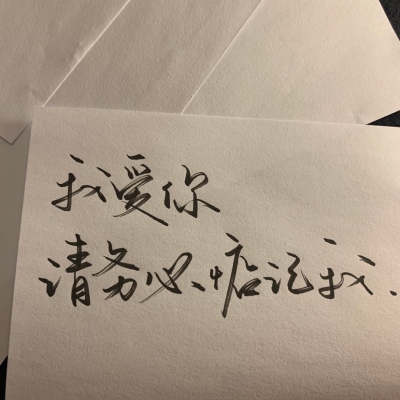 我爱你
请务必、惦记我.